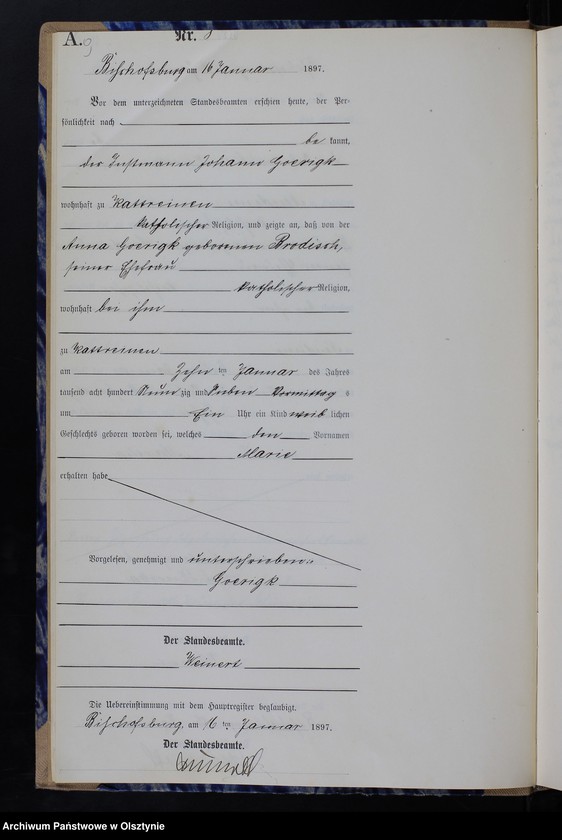 A.
Nr.
Bischofsburg am 16 Januar 1897.
Vor dem unterzeichneten Standesbeamten erschien heute, der Per-
sönlichkeit nach
be kannt,
der Instmann Johann Goerigk
wohnhaft zu Kattreinen
katholischer Religion, und zeigte an, daß von der
Anna Goerigk geborenen Brodisch,
seiner Ehefrau
katholischer Religion,
wohnhaft bei ihm
zu Kattreinen
am Zehn ten Januar des Jahres
tausend acht hundert Neun zig und sieben Vormittag s
um Ein Uhr ein Kind weib lichen
Geschlechts geboren worden sei, welches den Vornamen
Marie
erhalten habe
Vorgelesen, genehmigt und unterschrieben
Goerigk
Der Standesbeamte.
Weinert
Die Uebereinstimmung mit dem Hauptregister beglaubigt.
Bischofsburg, am 16 ten Januar 1897.
Der Standesbeamte.
Archiwum Państwowe w Olsztynie